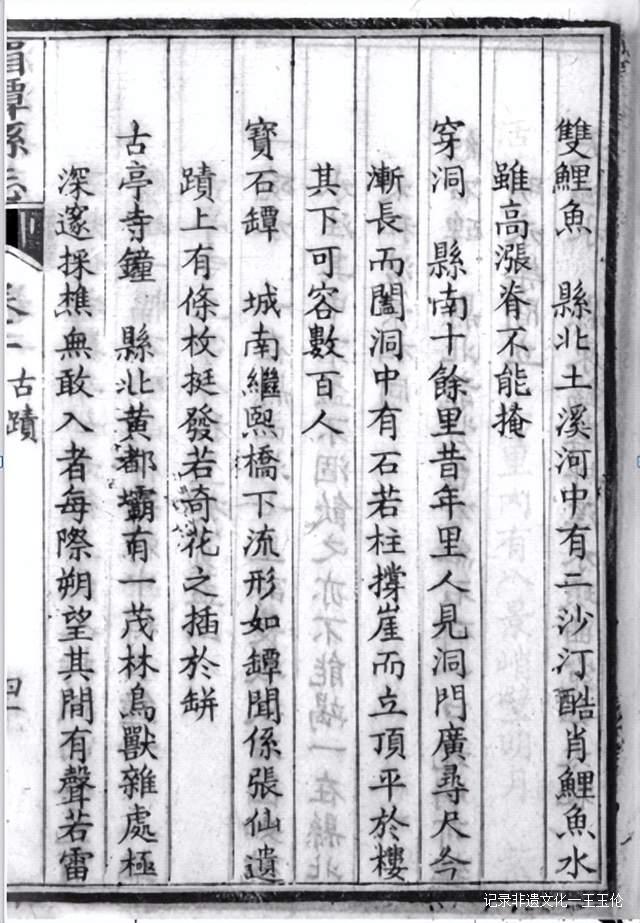 雙鯉魚　縣北土溪河中有二沙汀酷肖鯉魚水
雖高漲脊不能掩
穿洞　縣南十餘里昔年里人見洞門廣尋尺今
漸長而闊洞中有石若柱撐崖而立頂平於樓
其下可容數百人
寶石罈　城南繼熙橋下流形如罈聞係張仙遺
蹟上有條枚挺發若奇花之插於缾
古亭寺鐘　縣北黃都壩有一茂林鳥獸雜處極
深邃採樵無敢入者每際朔望其間有聲若雷
潭縣志
卷二
古蹟
四
记录非遗文化—王玉伦